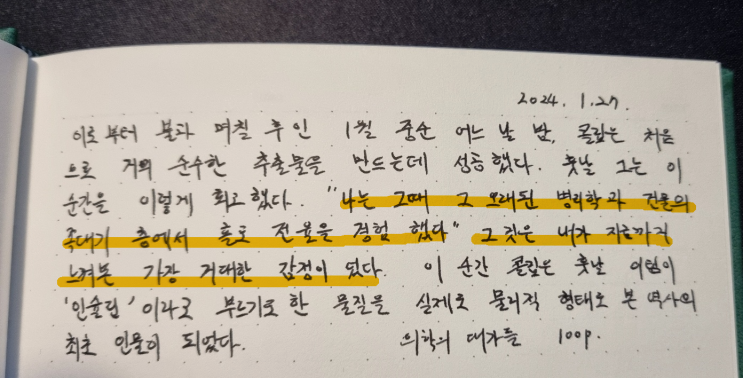 2024. 1.27.
이로부터 불과 며칠 후인 1월 중순 어느 날 밤, 콜립은 처음
으로 거의 순수한 추출물을 만드는데 성공했다. 훗날 그는 이
순간을 이렇게 회고했다. "나는 그때 그 오래된 병리학과 건물의
꼭대기 층에서 홀로 전율을 경험했다" 그것은 내가 지금까지
느껴본 가장 거대한 감정이었다. 이 순간 콜립은 훗날
'인슐린'이라고 부르기로 한 물질을 실제로 물리적 형태로 본 역사의
최초 인물이 되었다. 의학의 대가들 100p.